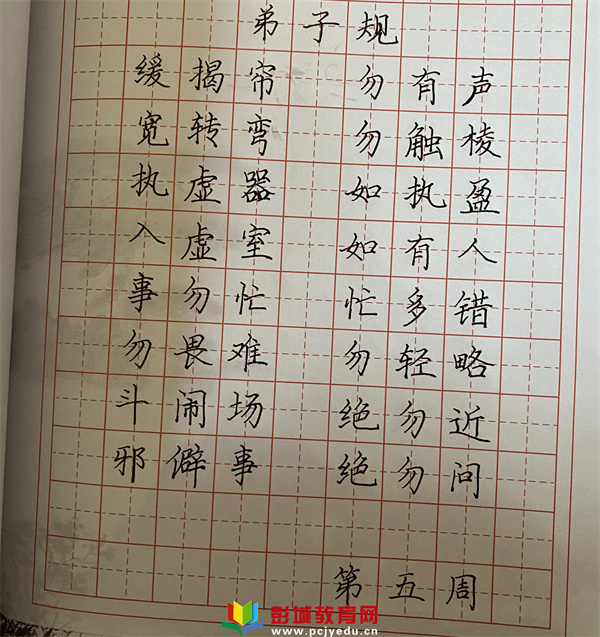 弟子规
缓揭帘 勿有声
宽转弯 勿触棱
执虚器 如执盈
入虚室 如有人
事勿忙 忙多错
勿畏难 勿轻略
斗闹场 绝勿近
邪僻事 绝勿问
第五周
彭城教育网
www.pcjyedu.cn